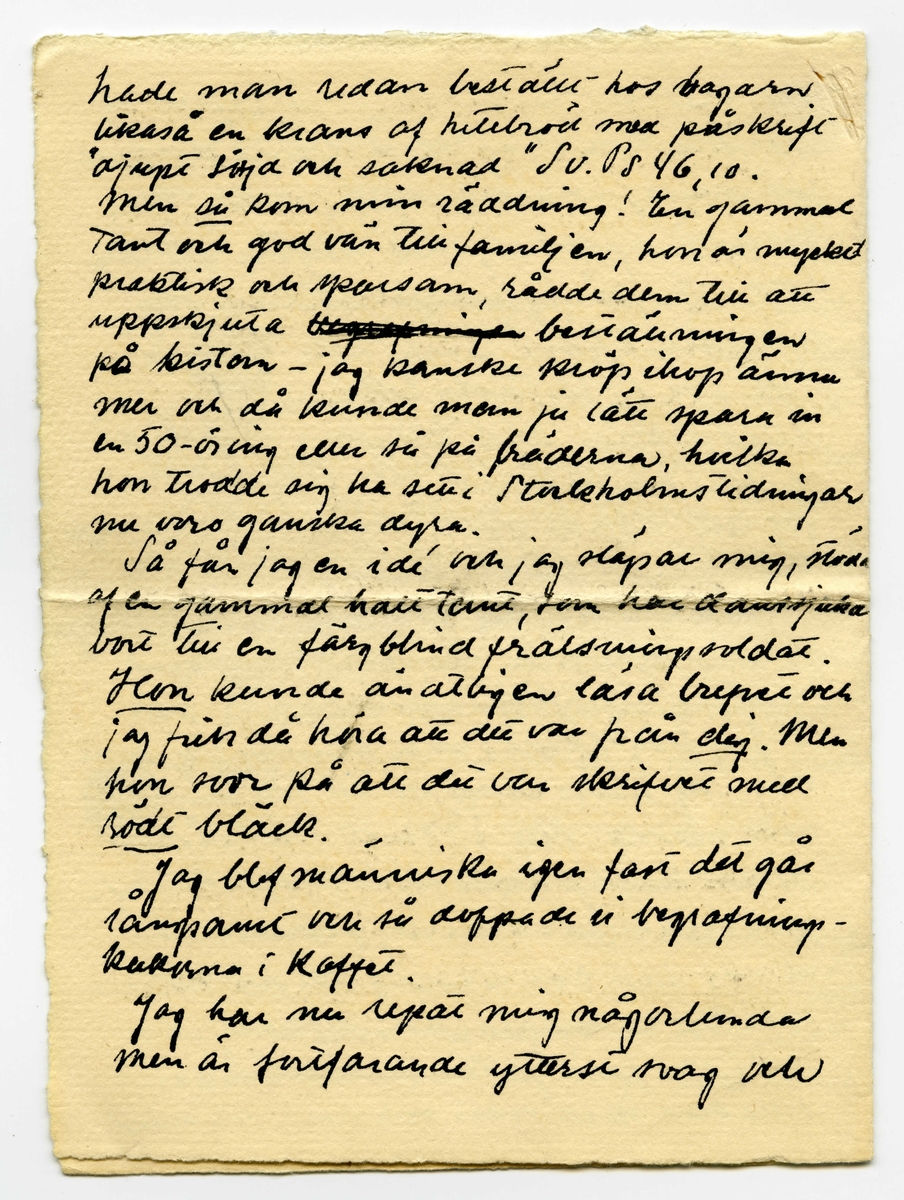 hade man redan beställt hos bagarn
likaså en krans af hvetebröd med påskrift
"djupt sörjd och saknad" Sv. Ps 46,10.
Men så kom min räddning! En gammal
Tant och god vän till familjen, hon är mycket
praktisk och sparsam, rådde dem till att
uppskjuta begrafningen beställningen
på kistan – jag kanske kröp ihop ännu
mer och då kunde man ju lätt spara in
en 50-öring eller så på bräderna, hvilka
hon trodde sig ha sett i Stockholmstidningar
nu voro ganska dyra.
Så får jag en idé och jag släpar mig, stödd
af en gammal halt tant, som har danssjuka
bort till en färgblind frälsningsoldat.
Hon kunde ändtligen läsa brefvet och
jag fick då höra att det var från dig. Men
hon svor på att det var skrifvet med
rödt bläck.
Jag blef människa igen fast det går
långsamt och så doppade vi begrafnings-
kakorna i kaffet.
Jag har nu repat mig någorlunda
men är fortfarande ytterst svag och